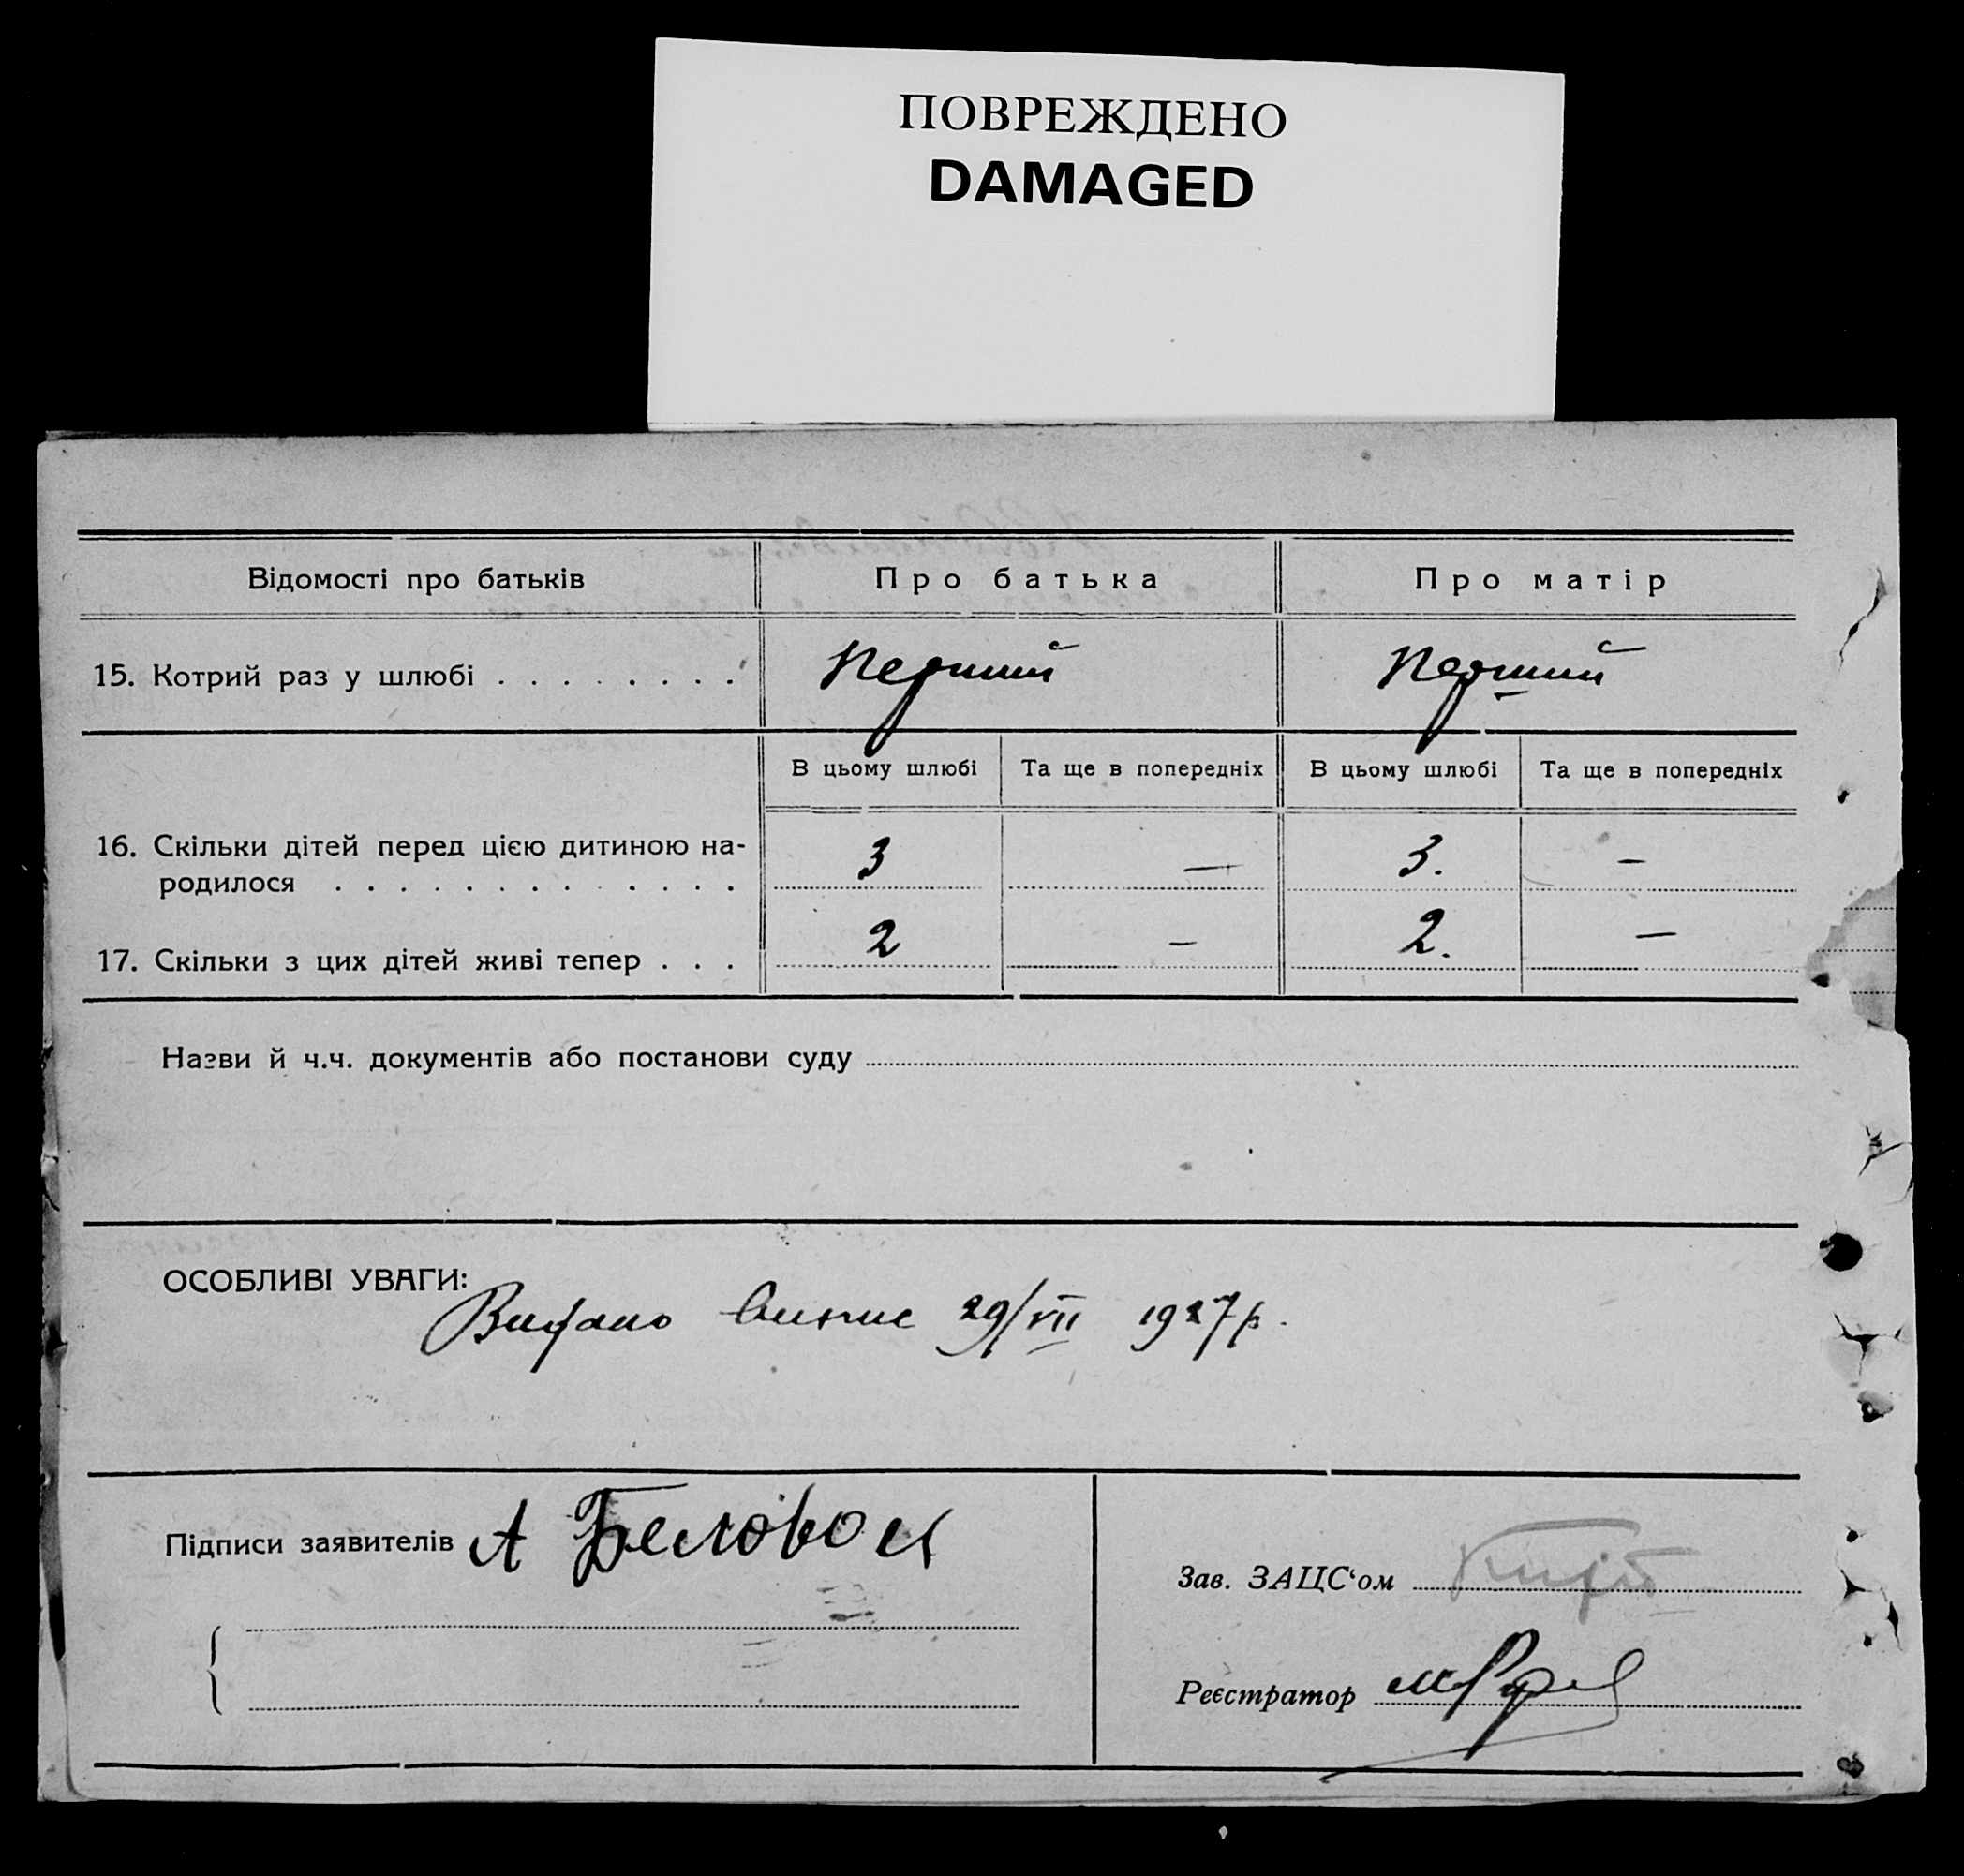 ПОВРЕЖДЕНО
DAMAGED
Відомості про батьків Про батька Про матір
15. Котрий раз у шлюбі . . . . . . . . Перший Перший
В цьому шлюбі Та ще в попередніх В цьому шлюбі Та ще в попередніх
16. Скільки дітей перед цією дитиною на-
родилося . . . . . . . . . . . . . 3 — 3. —
17. Скільки з цих дітей живі тепер . . . 2 — 2. —
Назви й ч.ч. документів або постанови суду
ОСОБЛИВІ УВАГИ:
Видано Випис 29/VII 1927 р.
Підписи заявителів А
Зав. ЗАЦС‘ом
Реєстратор